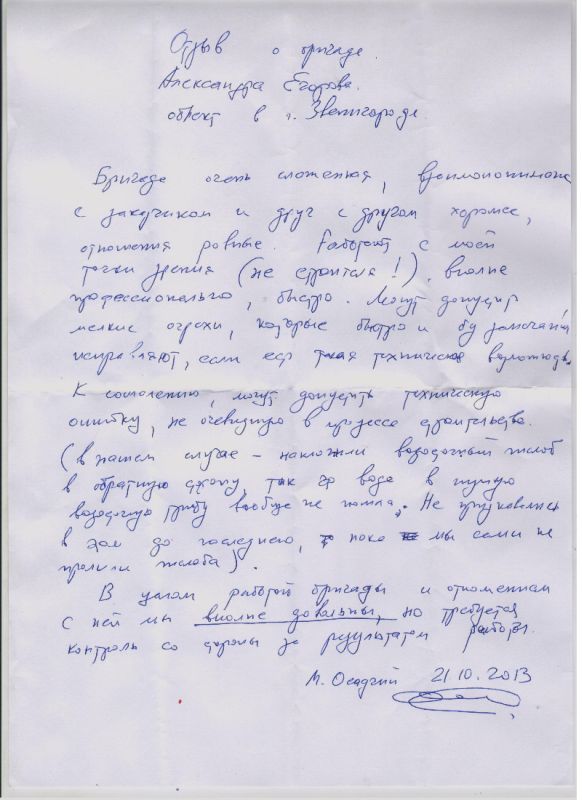 Отзыв о бригаде
Александра Егорова.
объект в г. Звенигороде.
Бригада очень слаженная, взаимопонимание
с заказчиком и друг с другом хорошее,
отношения ровные. Работают с моей
точки зрения (не строителя!) вполне
профессионально, быстро. Могут допустить
мелкие огрехи, которые быстро и без замечаний
исправляют, если есть такая техническая возможность.
К сожалению, могут допустить техническую
ошибку, не очевидную в процессе строительства.
(в нашем случае – наклонили водосточный желоб
в обратную сторону, так вода в нужную
водосточную трубу вообще не пошла. Не признавались
в этом до последнего, пока мы сами не
пролили желоба).
В целом работой бригады и отношением
с ней мы вполне довольны, но требуется
контроль со стороны за результатом работы.
М. Осадчий 21.10.2013